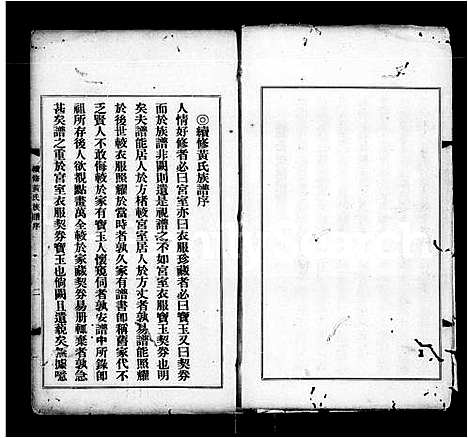 ◎續修黃氏族譜序
人情好修者必曰宮室亦曰衣服珍藏者必曰寶玉又曰契券
而於族譜非闕則遺是視譜之不如宮室衣服寶玉契券也明
矣夫譜能居人於方楮較宮室居人於方丈者孰易譜能照耀
於後世較衣服照耀於當時者孰久家有譜書即稱舊家代不
乏賢人不敢侮較於家有寶玉人懷窺伺者孰安譜中所錄即
祖所存後人欲視點畫萬全較於家藏契券易册輒棄者孰急
甚矣譜之重於宮室衣服契券寶玉也倘闕且遺藐矣無據噫
續修黃氏族譜序
二